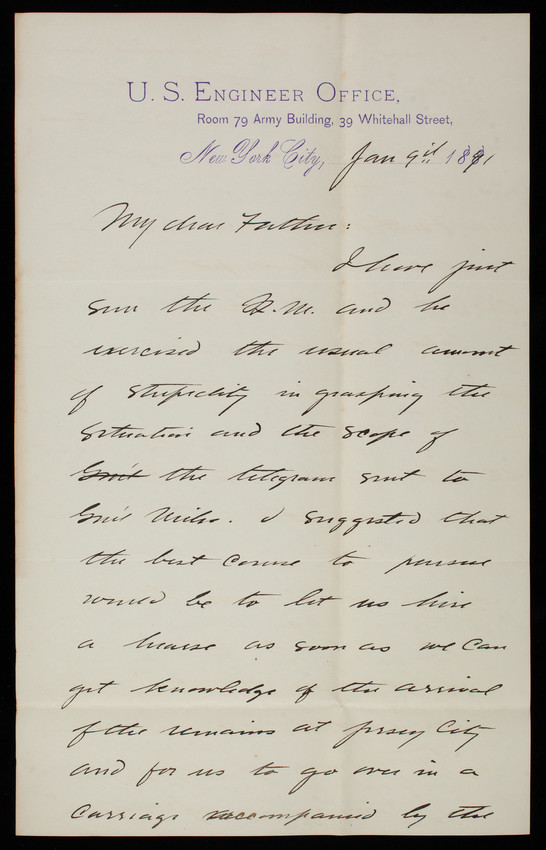 U. S. ENGINEER OFFICE,
Room 79 Army Building, 39 Whitehall Street,
New York City, Jan 9th 1891
My dear Father:
I have just
seen the Q. M. and he
exercised the usual amount
of stupidity in grasping the
situation and the scope of
Gen'l the telegram sent to
Gen'l Miles. I suggested that
the best course to pursue
would be to let us hire
a hearse as soon as we can
get knowledge of the arrival
of the remains at Jersey City
and for us to go over in a
carriage accompanied by the